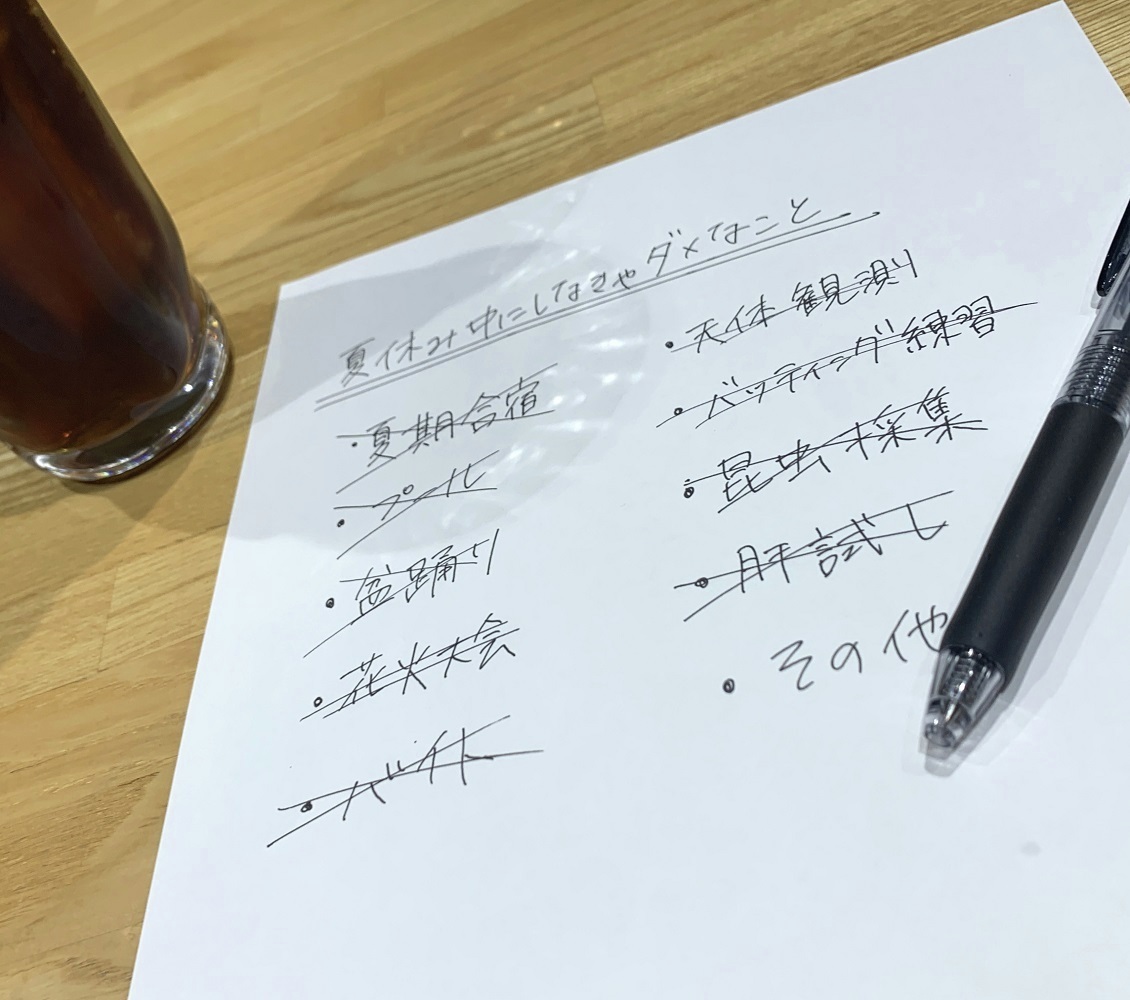 夏休み中にしなきゃダメなこと
・夏期合宿
・プール
・盆踊り
・花火大会
・バイト
・天体観測
・バッティング練習
・昆虫採集
・肝試し
・その他